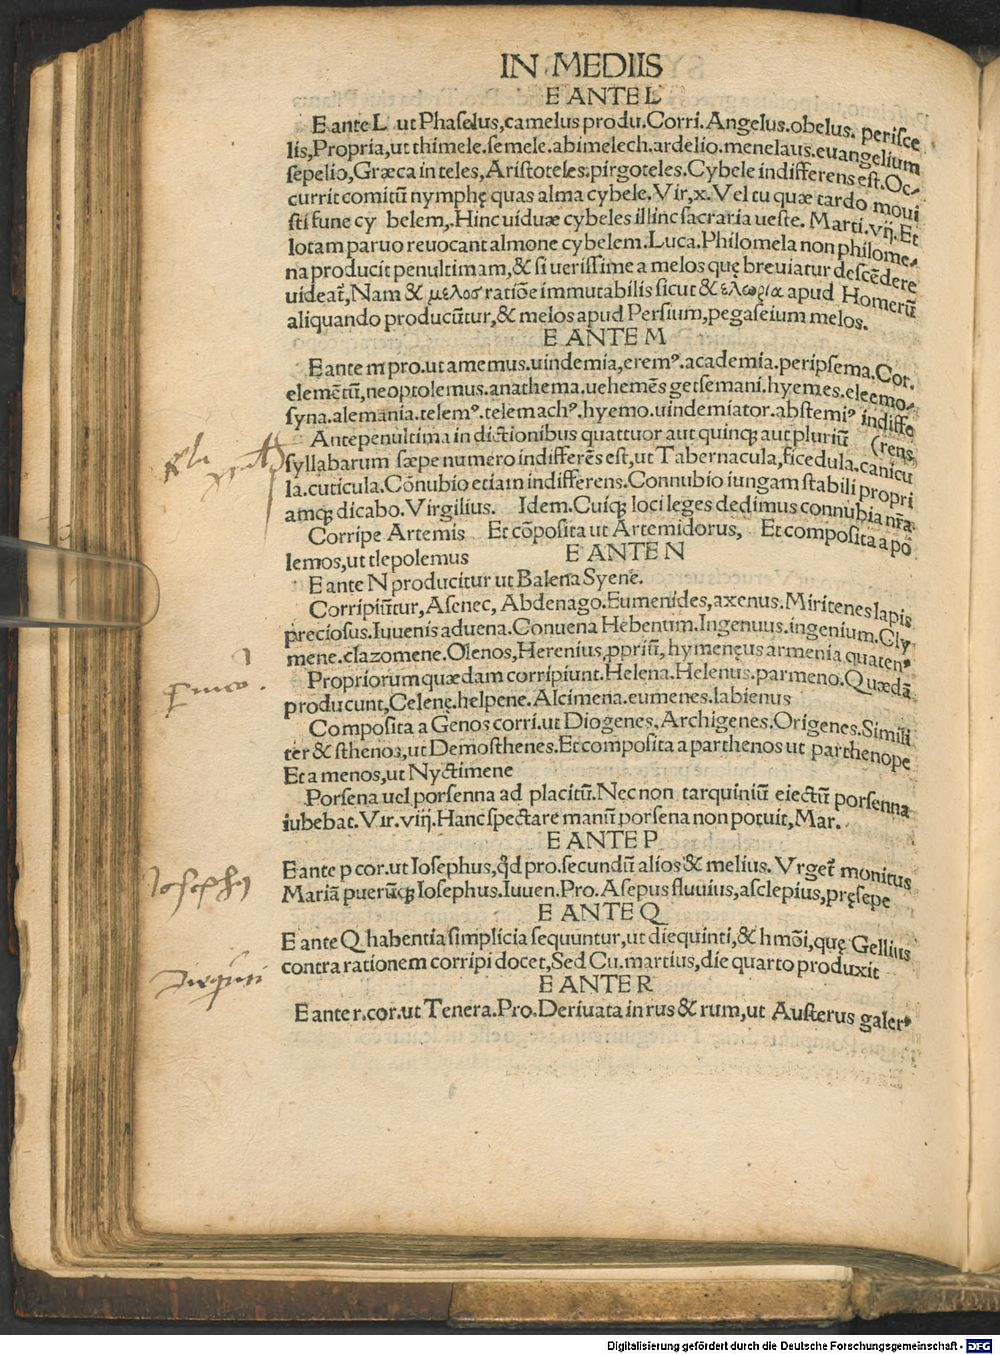 IN MEDIIS
E ANTE L
E ante L ut Phaselus,camelus produ.Corri.Angelus.obelus. perisce
lis,Propria,ut thimele.semele.abimelech.ardelio.menelaus.euangelium
sepelio,Græca in teles,Aristoteles:pirgoteles.Cybele indifferens est.Oc-
currit comitū nymphę quas alma cybele.Vir,x.Vel tu quæ tardo moui
sti fune cy belem,.Hinc uiduæ cybeles illinc sacraria ueste. Marti.vij.Et
lotam paruo reuocant almone cybelem.Luca.Philomela non philome-
na producit penultimam,& si uerissime a melos quę breuiatur descēdere
uideat̄,Nam & μελοσ ratiōe immutabilis sicut & ελωρια apud Homerū
aliquando producūtur,& melos apud Persium,pegaseium melos.
E ANTE M
E ante m pro.ut amemus.uindemia,eremꝰ.academia.peripsema.Cor.
elemētū,neoptolemus.anathema.uehemēs getsemani.hyemes.eleemo-
syna.alemania.telemꝰ.telemachꝰ.hyemo.uindemiator.abstemiꝰ indiffe
Antepenultima in dictionibus quattuor aut quinqꝫ aut pluriū (rens
syllabarum sæpe numero indifferēs est,ut Tabernacula,ficedula.canicu
la.cuticula.Cōnubio etiam indifferens.Connubio iungam stabili propri
amqꝫ dicabo.Virgilius. Idem.Cuiqꝫ loci leges dedimus connubia nr̄a
Corripe Artemis Et cōposita ut Artemidorus, Et composita a pō
lemos,ut tlepolemus E ANTE N
E ante N producitur ut Balena Syene.
Corripiūtur,Asenec,Abdenago.Eumenides,axenus.Miritenes lapis
preciosus.Iuuenis aduena.Conuena Hebenum.Ingenuus.ingenium.Cly
mene.clazomene.Olenos,Herenius,ppriū,hymenęus armenia quatenꝰ
Propriorum quædam corripiunt.Helena.Helenus.parmeno.Quædā
producunt,Celenę.helpene.Alcimena.eumenes.labienus
Composita a Genos corri.ut Diogenes.Archigenes.Origenes.Simili
ter & sthenos,ut Demosthenes.Et composita a parthenos ut parthenope
Et a menos,ut Nyctimene
Porsena uel porsenna ad placitū.Nec non tarquiniū eiectū porsenna
iubebat.Vir.viij.Hanc spectare manū porsena non potuit,Mar.
E ANTE P
E ante p cor.ut Iosephus,qd̄ pro.secundū alios & melius. Vrget̄ monitus
Mariā puerūqꝫ Iosephus.Iuuen.Pro.Asepus fluuius,asclepius,pręsepe
E ANTE Q
E ante Q habentia simplicia sequuntur,ut diequinti,& hmōi,quę Gellius
contra rationem corripi docet,Sed Cu.martius,die quarto produxit
E ANTE R
E ante r.cor.ut Tenera.Pro.Deriuata in rus & rum,ut Austerus galerꝰ
Iosephꝰ
Diequinti
Digitalisierung gefördert durch die Deutsche Forschungsgemeinschaft - DFG